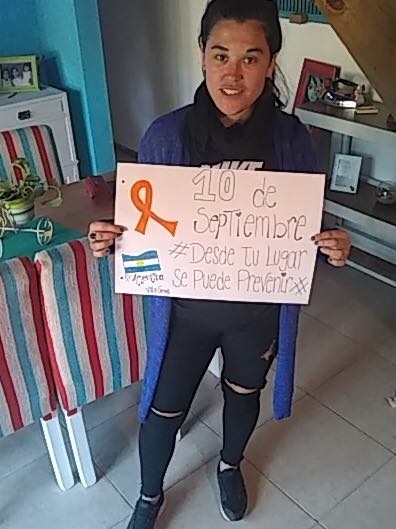 10 de
Septiembre
#Desde Tu Lugar
Se Puede Prevenir
Argentina